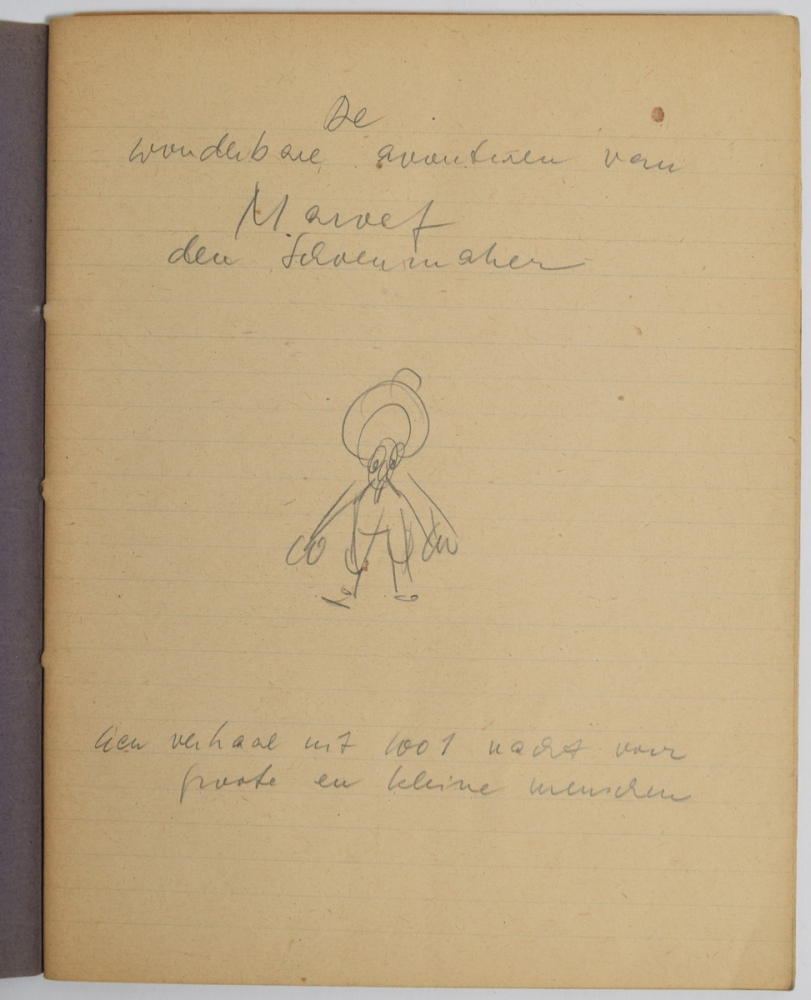 De
wonderbare avonturen van
Maroef
den Schoenmaker
Een verhaal uit 1001 nacht voor
groote en kleine menschen